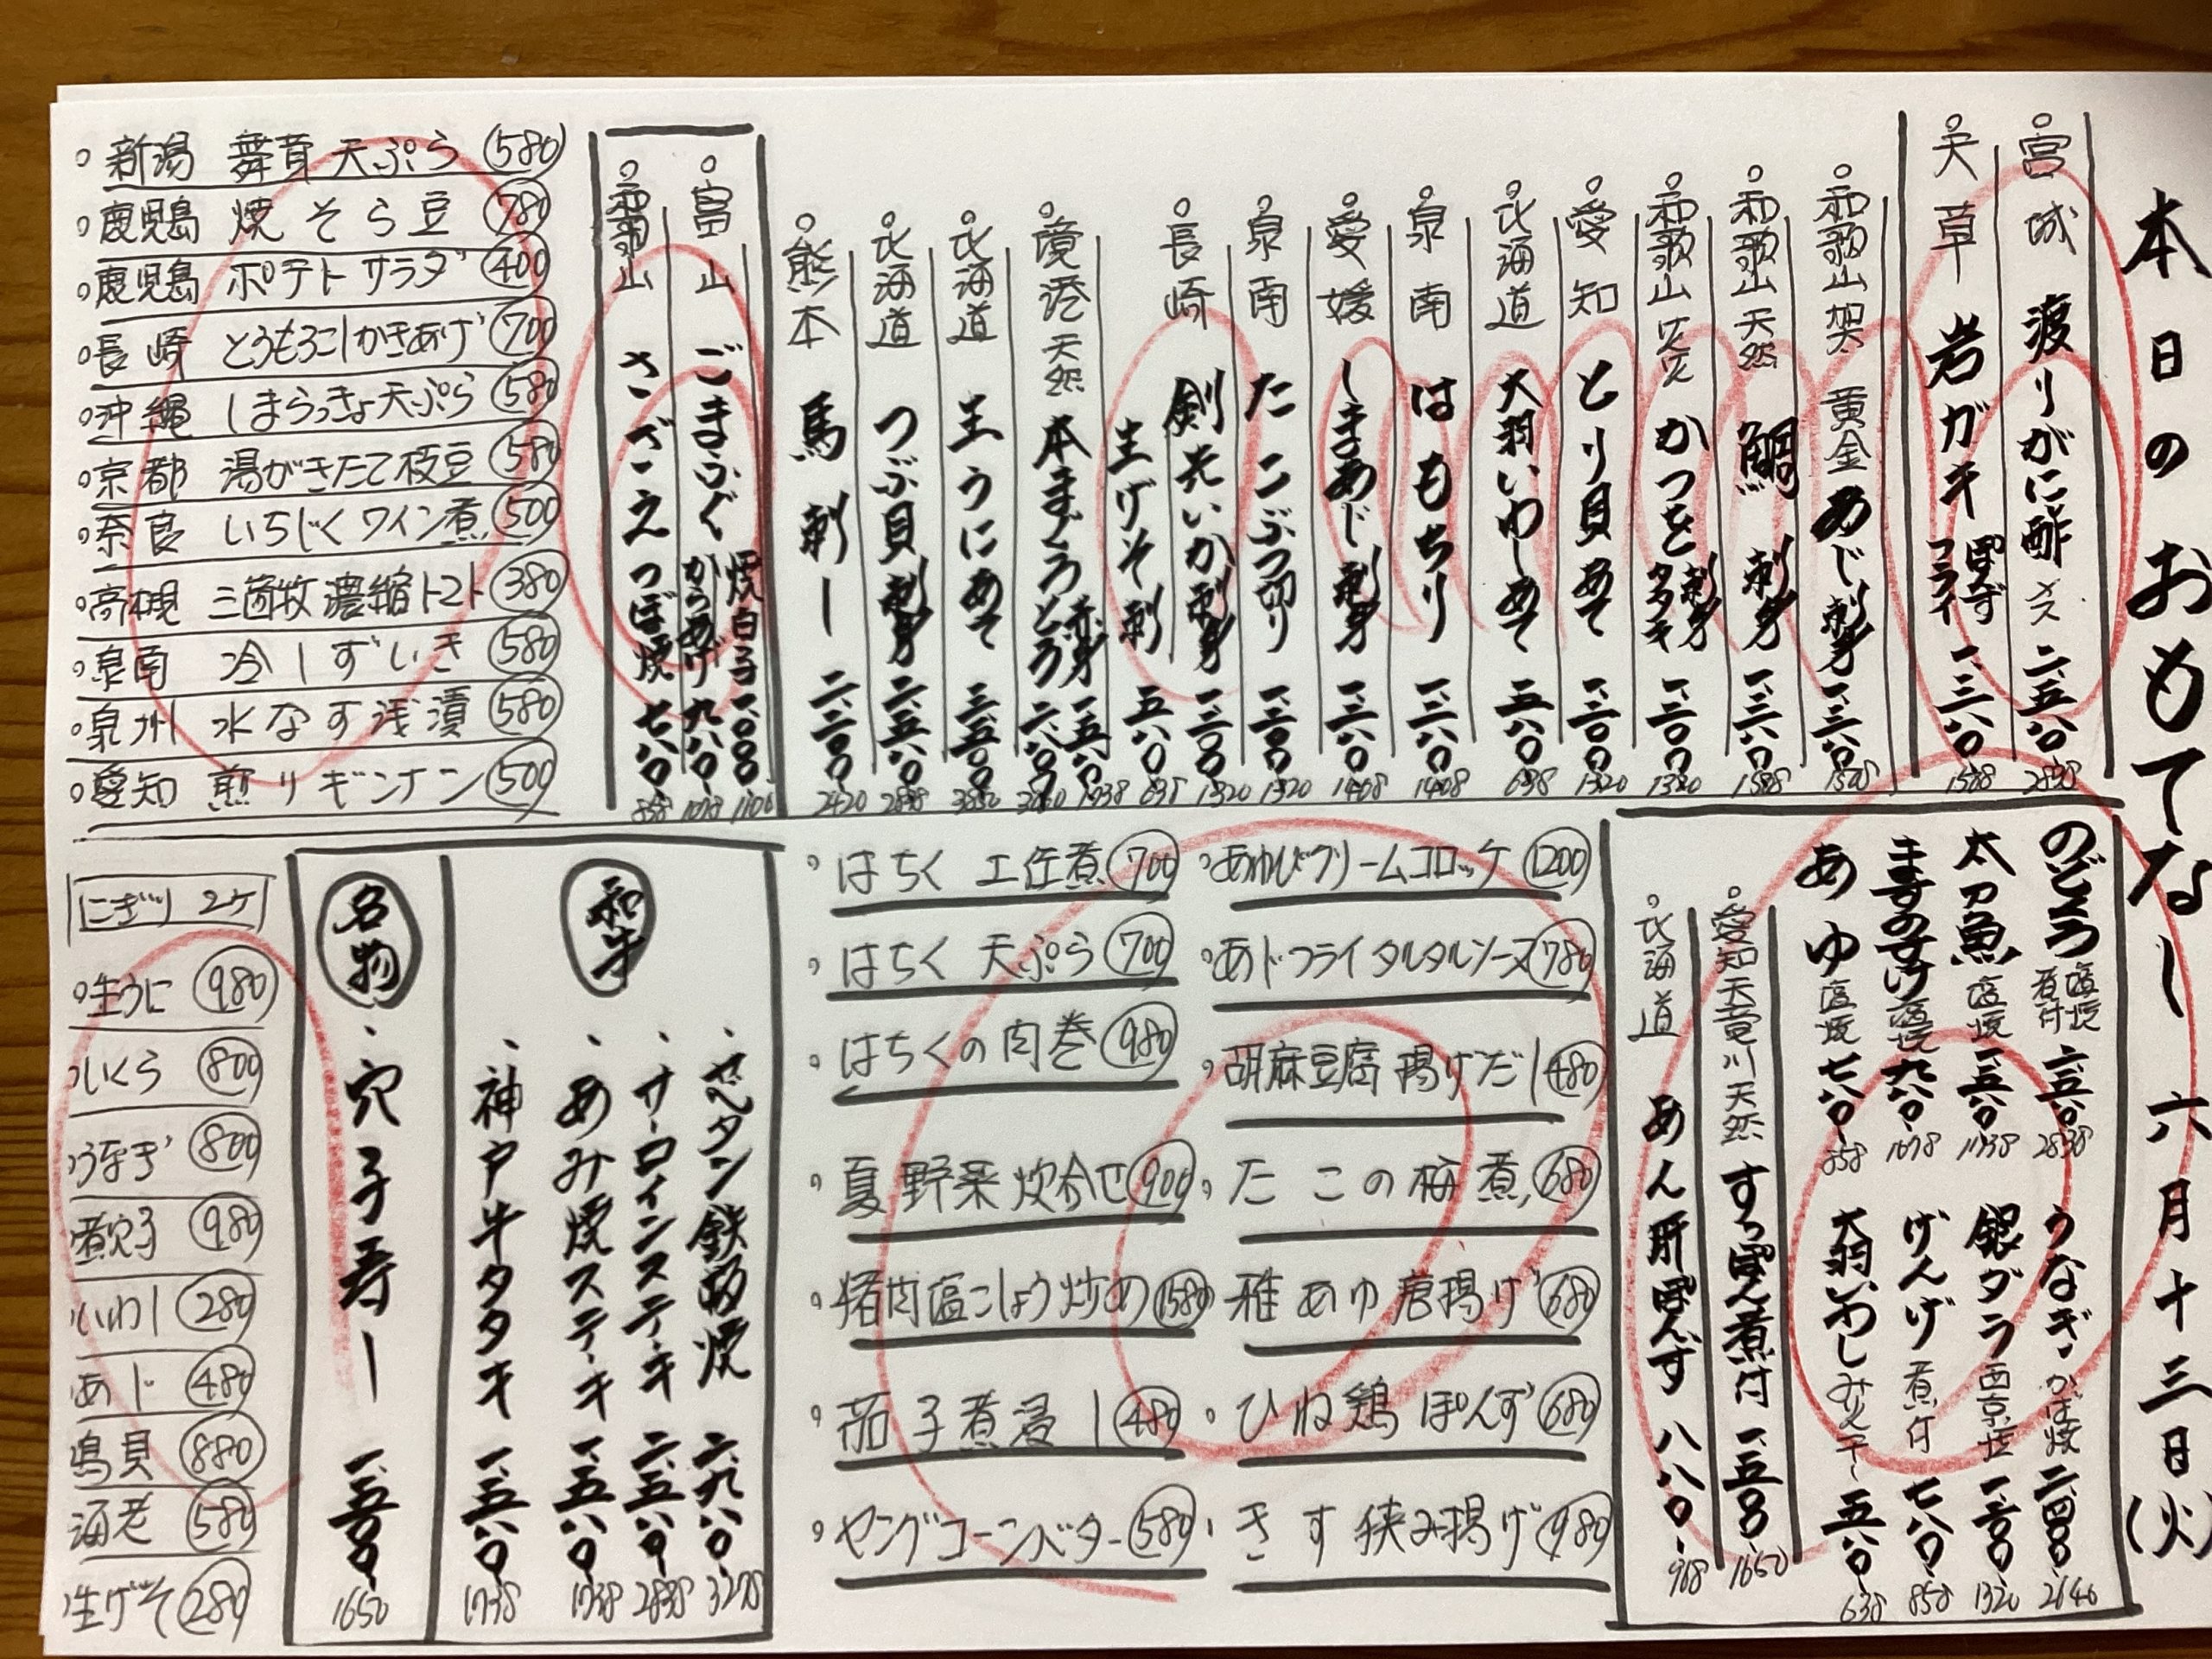 本日のおもてなし 六月十三日(火)
宮城 渡りがに酢 メス 二、五八〇 2838
天草 岩ガキ ぽんず フライ 一、三八〇 1518
和歌山 黄金あじ刺身 一、三八〇
和歌山 天然 鯛 刺身 一、三八〇
和歌山 かつを 刺身 タタキ 一、二〇〇 1320
愛知 とり貝 あて 一、二〇〇 1320
北海道 大羽いわしあて 五八〇 638
泉南 はもちり 一、二八〇 1408
愛媛 しまあじ刺身 一、二八〇 1408
泉南 たこぶつ切り 一、二〇〇 1320
長崎 剣先いか刺身 一、二〇〇 1320
生げそ刺 五八〇 638
境港 天然 本まぐろ 赤身 一、五八〇 1738
とろ 二、八〇〇
北海道 生うにあて 三、五〇〇 3850
北海道 つぶ貝刺身
熊本 馬刺し 二、二〇〇 2420
富山 ごまふぐ 焼白子 一、〇〇〇 1100
からあげ 九八〇 1078
和歌山 さざえ つぼ焼 七八〇 858
・新潟 舞茸天ぷら 580
・鹿児島 焼そら豆 780
・鹿児島 ポテトサラダ 400
・長崎 とうもろこしかきあげ 700
・沖縄 しまらっきょ天ぷら 580
・京都 湯がきたて枝豆 580
・奈良 いちじくワイン煮 500
・高槻 三箇牧濃縮トマト 380
・泉南 冷しずいき 580
・泉州 水なす浅漬 580
・愛知 煎りギンナン 500
のどぐろ 塩焼 煮付 二、五八〇 2838
太刀魚 塩焼 一、五八〇 1738
ますのすけ 塩焼 九八〇 1078
あゆ 塩焼 七八〇 858
うなぎ かば焼 二、四〇〇 2640
銀ダラ 西京焼 一、二〇〇 1320
げんげ 煮付 七八〇 858
大羽いわし 五八〇 638
愛知天竜川天然 すっぽん煮付 一、五〇〇 1650
北海道 あん肝ぽんず 八八〇 968
・クリームコロッケ 1200
・あじフライタルタルソース 780
・胡麻豆腐 揚げだし 480
・たこの梅煮 680
・稚あゆ唐揚げ 680
・ひね鶏ぽんず 680
・きす挟み揚げ 980
・はちく 土佐煮 700
・はちく 天ぷら 700
・はちくの肉巻 980
・夏野菜炊合せ 900
・猪肉塩こしょう炒め 1580
・茄子煮浸し 480
・ヤングコーンバター 580
和牛
・ゼンタン鉄板焼 二、九八〇 3278
・サーロインステーキ 二、五八〇 2838
・あみ焼ステーキ 一、五八〇 1738
・神戸牛タタキ 一、五八〇 1738
名物
・穴子寿し 一、五〇〇 1650
にぎり 2ケ
・生うに 980
・いくら 800
・うなぎ 800
・煮穴子 980
・いわし 280
・あじ 480
鳥貝 880
海老 580
・生げそ 280